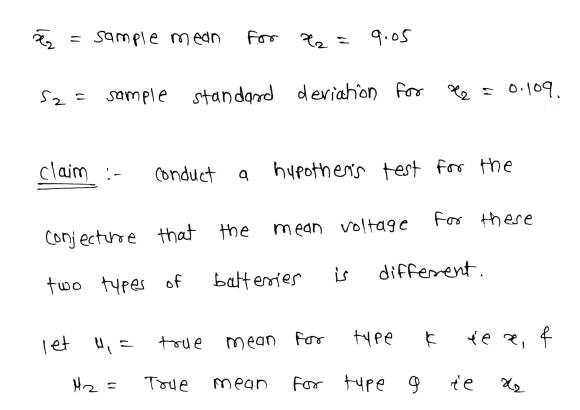 x̄₂ = sample mean for x₂ = 9.05
S₂ = sample standard deviation for x₂ = 0.109.
claim :- conduct a hypothesis test for the
conjecture that the mean voltage for these
two types of batteries is different.
let μ₁ = true mean for type k ie x₁ &
μ₂ = True mean for type q ie x₂